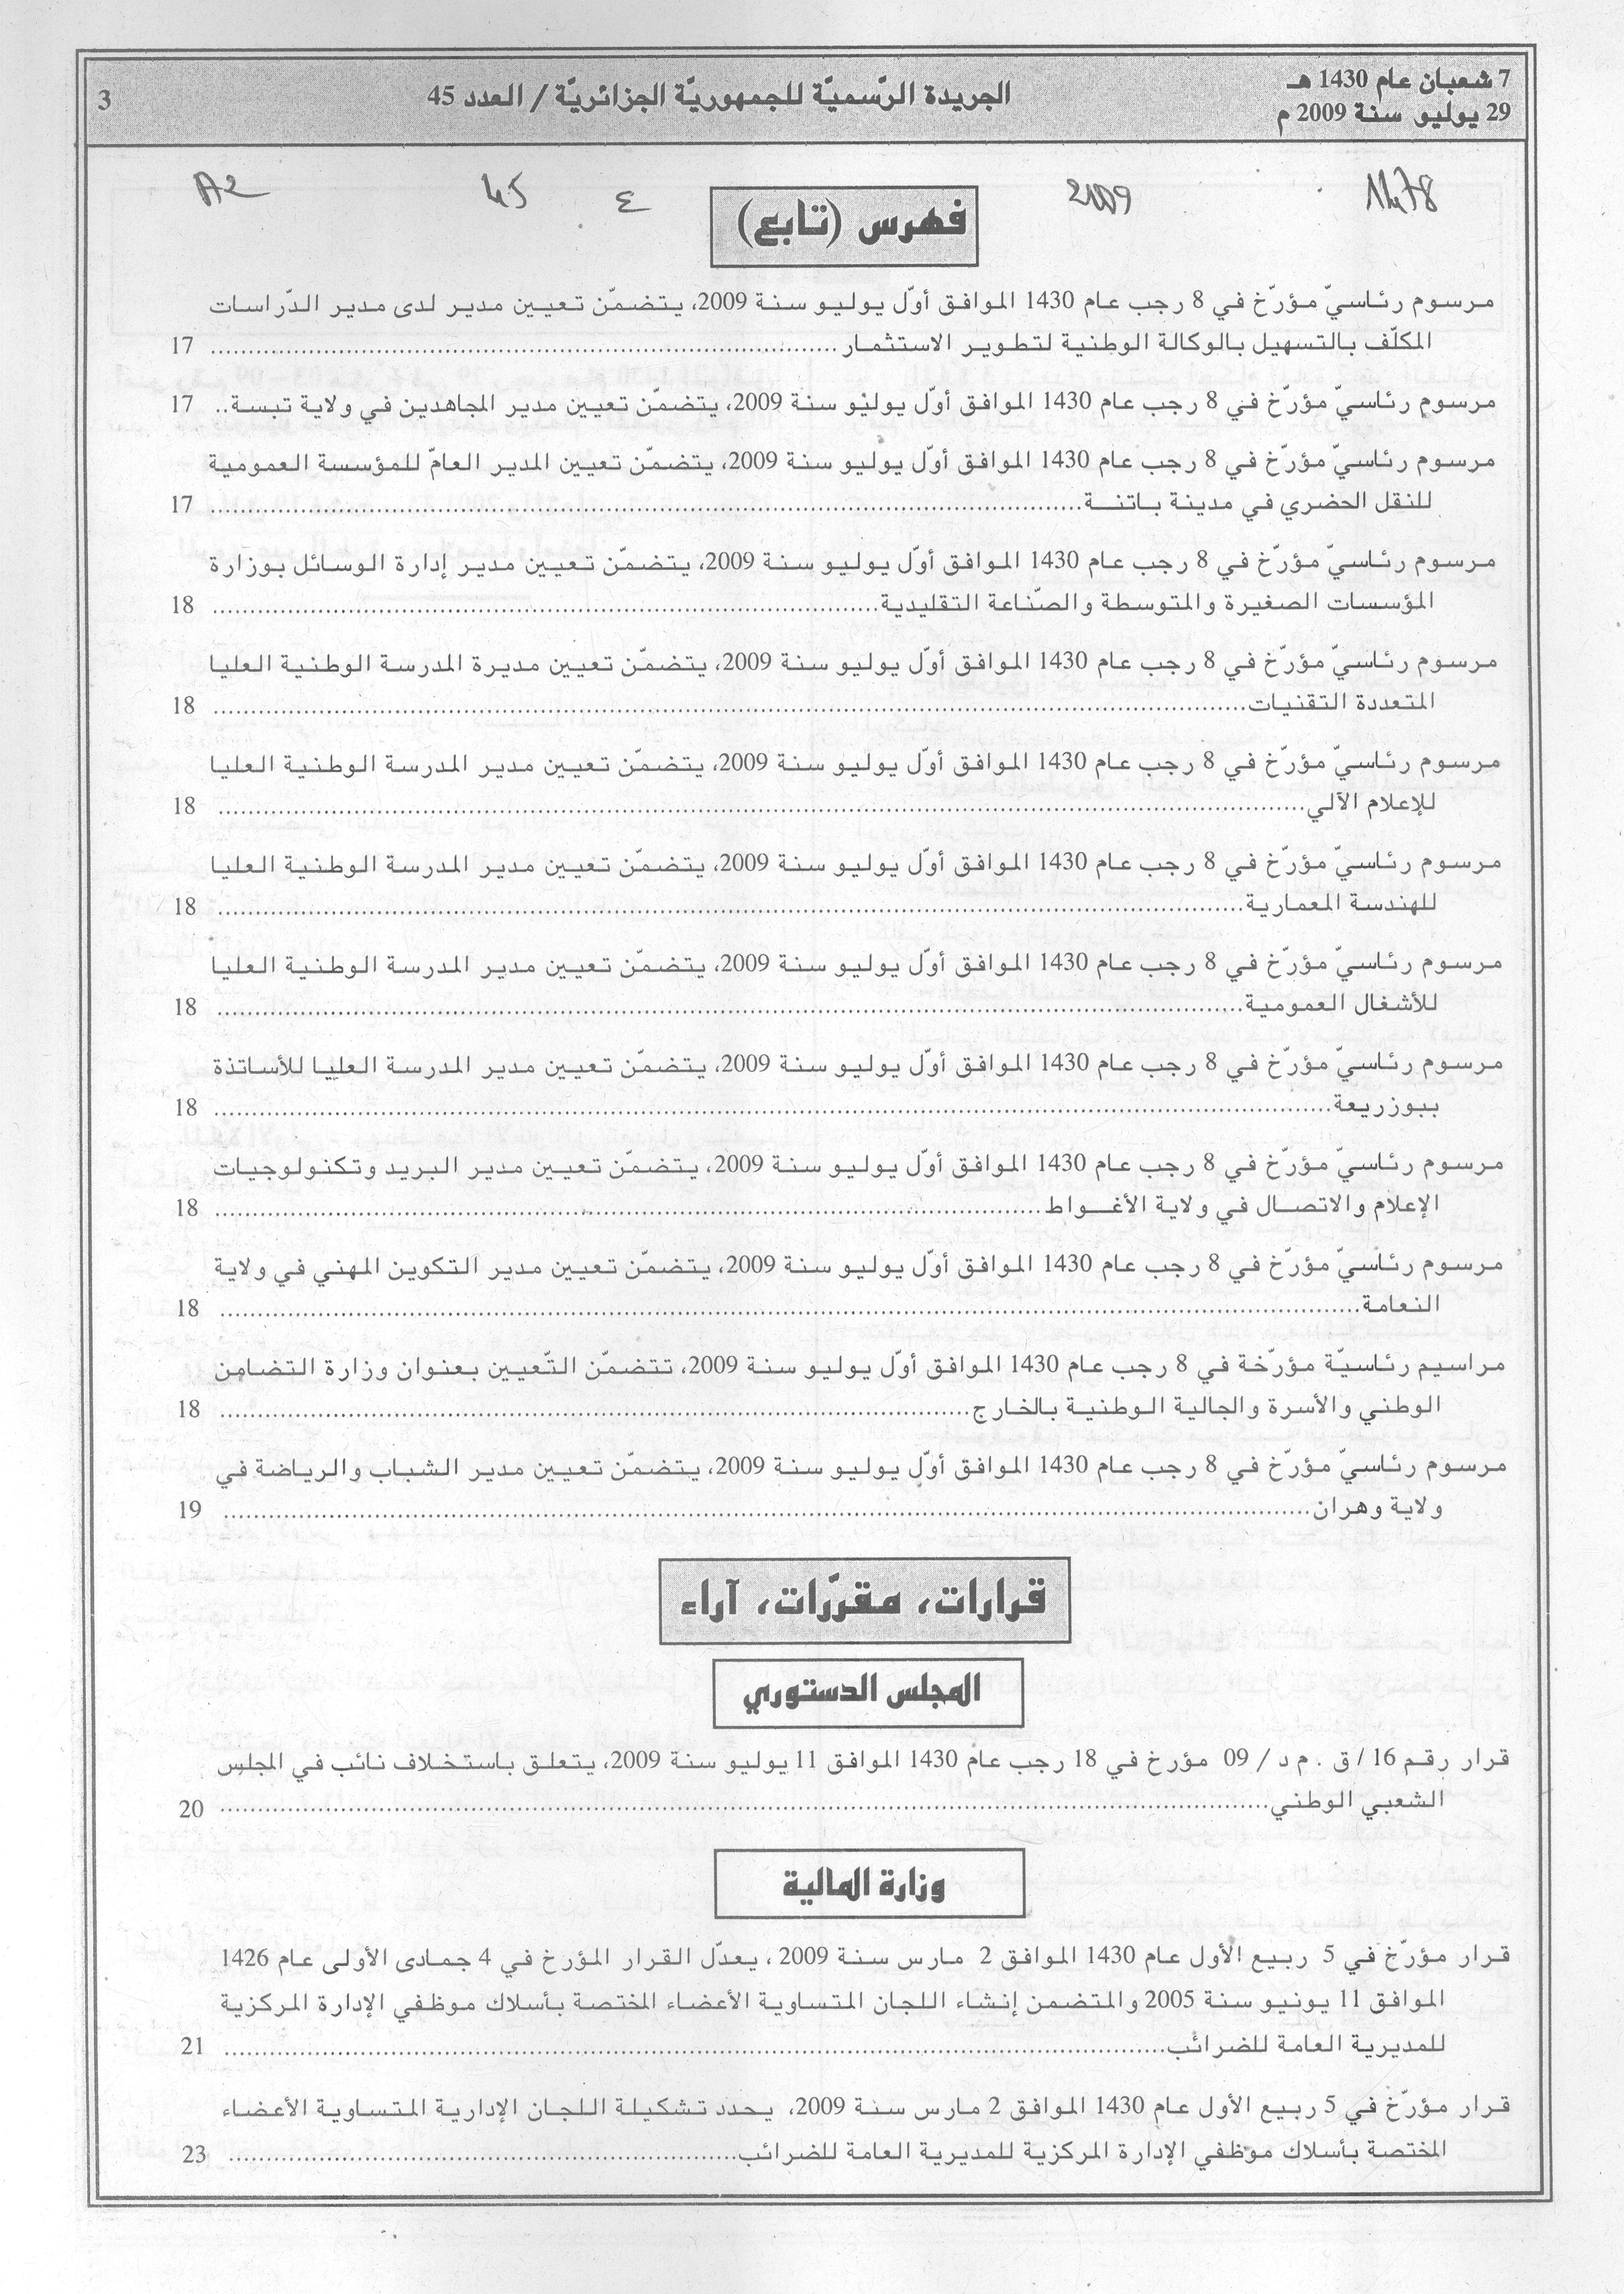 7 شعبان عام 1430 هـ
29 يوليو سنة 2009 م
الجريدة الرّسميّة للجمهوريّة الجزائريّة / العدد 45
3
1478
2009
ع
45
A2
فهرس (تابع)
مرسوم رئاسيّ مؤرّخ في 8 رجب عام 1430 الموافق أوّل يوليو سنة 2009، يتضمّن تعيين مدير لدى مدير الدّراسات
المكلّف بالتسهيل بالوكالة الوطنية لتطوير الاستثمار.................... 17
مرسوم رئاسيّ مؤرّخ في 8 رجب عام 1430 الموافق أوّل يوليو سنة 2009، يتضمّن تعيين مدير المجاهدين في ولاية تبسة.. 17
مرسوم رئاسيّ مؤرّخ في 8 رجب عام 1430 الموافق أوّل يوليو سنة 2009، يتضمّن تعيين المدير العامّ للمؤسسة العمومية
للنقل الحضري في مدينة باتنة.................... 17
مرسوم رئاسيّ مؤرّخ في 8 رجب عام 1430 الموافق أوّل يوليو سنة 2009، يتضمّن تعيين مدير إدارة الوسائل بوزارة
المؤسسات الصغيرة والمتوسطة والصّناعة التقليدية.................... 18
مرسوم رئاسيّ مؤرّخ في 8 رجب عام 1430 الموافق أوّل يوليو سنة 2009، يتضمّن تعيين مديرة المدرسة الوطنية العليا
المتعددة التقنيات.................... 18
مرسوم رئاسيّ مؤرّخ في 8 رجب عام 1430 الموافق أوّل يوليو سنة 2009، يتضمّن تعيين مدير المدرسة الوطنية العليا
للإعلام الآلي.................... 18
مرسوم رئاسيّ مؤرّخ في 8 رجب عام 1430 الموافق أوّل يوليو سنة 2009، يتضمّن تعيين مدير المدرسة الوطنية العليا
للهندسة المعمارية.................... 18
مرسوم رئاسيّ مؤرّخ في 8 رجب عام 1430 الموافق أوّل يوليو سنة 2009، يتضمّن تعيين مدير المدرسة الوطنية العليا
للأشغال العمومية.................... 18
مرسوم رئاسيّ مؤرّخ في 8 رجب عام 1430 الموافق أوّل يوليو سنة 2009، يتضمّن تعيين مدير المدرسة العليا للأساتذة
ببوزريعة.................... 18
مرسوم رئاسيّ مؤرّخ في 8 رجب عام 1430 الموافق أوّل يوليو سنة 2009، يتضمّن تعيين مدير البريد وتكنولوجيات
الإعلام والاتصال في ولاية الأغواط.................... 18
مرسوم رئاسيّ مؤرّخ في 8 رجب عام 1430 الموافق أوّل يوليو سنة 2009، يتضمّن تعيين مدير التكوين المهني في ولاية
النعامة.................... 18
مراسيم رئاسيّة مؤرّخة في 8 رجب عام 1430 الموافق أوّل يوليو سنة 2009، تتضمّن التّعيين بعنوان وزارة التضامن
الوطني والأسرة والجالية الوطنية بالخارج.................... 18
مرسوم رئاسيّ مؤرّخ في 8 رجب عام 1430 الموافق أوّل يوليو سنة 2009، يتضمّن تعيين مدير الشباب والرياضة في
ولاية وهران.................... 19
قرارات، مقرّرات، آراء
المجلس الدستوري
قرار رقم 16 / ق . م د / 09 مؤرخ في 18 رجب عام 1430 الموافق 11 يوليو سنة 2009، يتعلق باستخلاف نائب في المجلس
الشعبي الوطني.................... 20
وزارة المالية
قرار مؤرّخ في 5 ربيع الأول عام 1430 الموافق 2 مارس سنة 2009 ، يعدّل القرار المؤرخ في 4 جمادى الأولى عام 1426
الموافق 11 يونيو سنة 2005 والمتضمن إنشاء اللجان المتساوية الأعضاء المختصة بأسلاك موظفي الإدارة المركزية
للمديرية العامة للضرائب.................... 21
قرار مؤرّخ في 5 ربيع الأول عام 1430 الموافق 2 مارس سنة 2009، يحدد تشكيلة اللجان الإدارية المتساوية الأعضاء
المختصة بأسلاك موظفي الإدارة المركزية للمديرية العامة للضرائب.................... 23